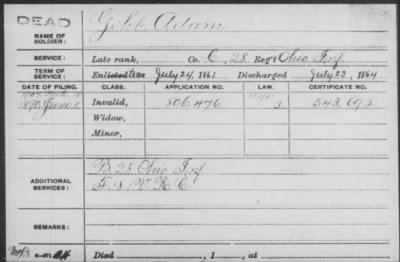 DEAD
NAME OF SOLDIER: Gobb Adam
SERVICE: Late rank, Co. C, 28 Reg't Ohio Inf.
TERM OF SERVICE: Enlisted July 24, 1861 Discharged July 23, 1864
DATE OF FILING. CLASS. APPLICATION NO. LAW. CERTIFICATE NO.
1890 June Invalid, 806.476 543.692
Widow,
Minor,
ADDITIONAL SERVICES: B. 28 Ohio Inf
F. 18 V.R.C.
REMARKS:
Died , 1 , at